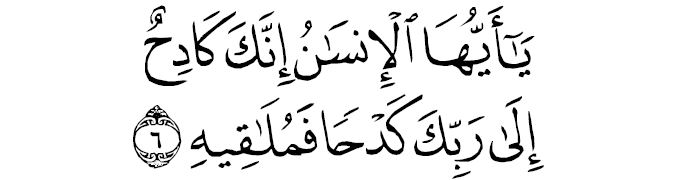 يَـٰٓأَيُّهَا ٱلْإِنسَـٰنُ إِنَّكَ كَادِحٌ
إِلَىٰ رَبِّكَ كَدْحًا فَمُلَـٰقِيهِ ٦